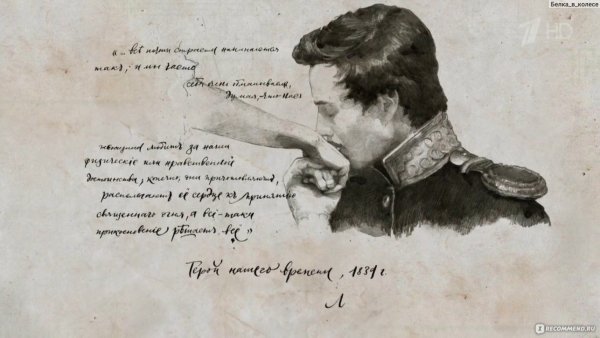 Белка_в_колесе
HD
«... всѣ почти страсти начинаются
такъ, и мы часто
себя очень обманываемъ,
думая, что насъ
женщина любитъ за наши
физическіе или нравственные
достоинства, конечно, они приготовляютъ,
располагаютъ её сердце къ принятію
священнаго огня, а всё-таки
прикосновеніе рѣшаетъ всё»
Герой нашего времени, 1839 г.
Л
IRECOMMEND.RU